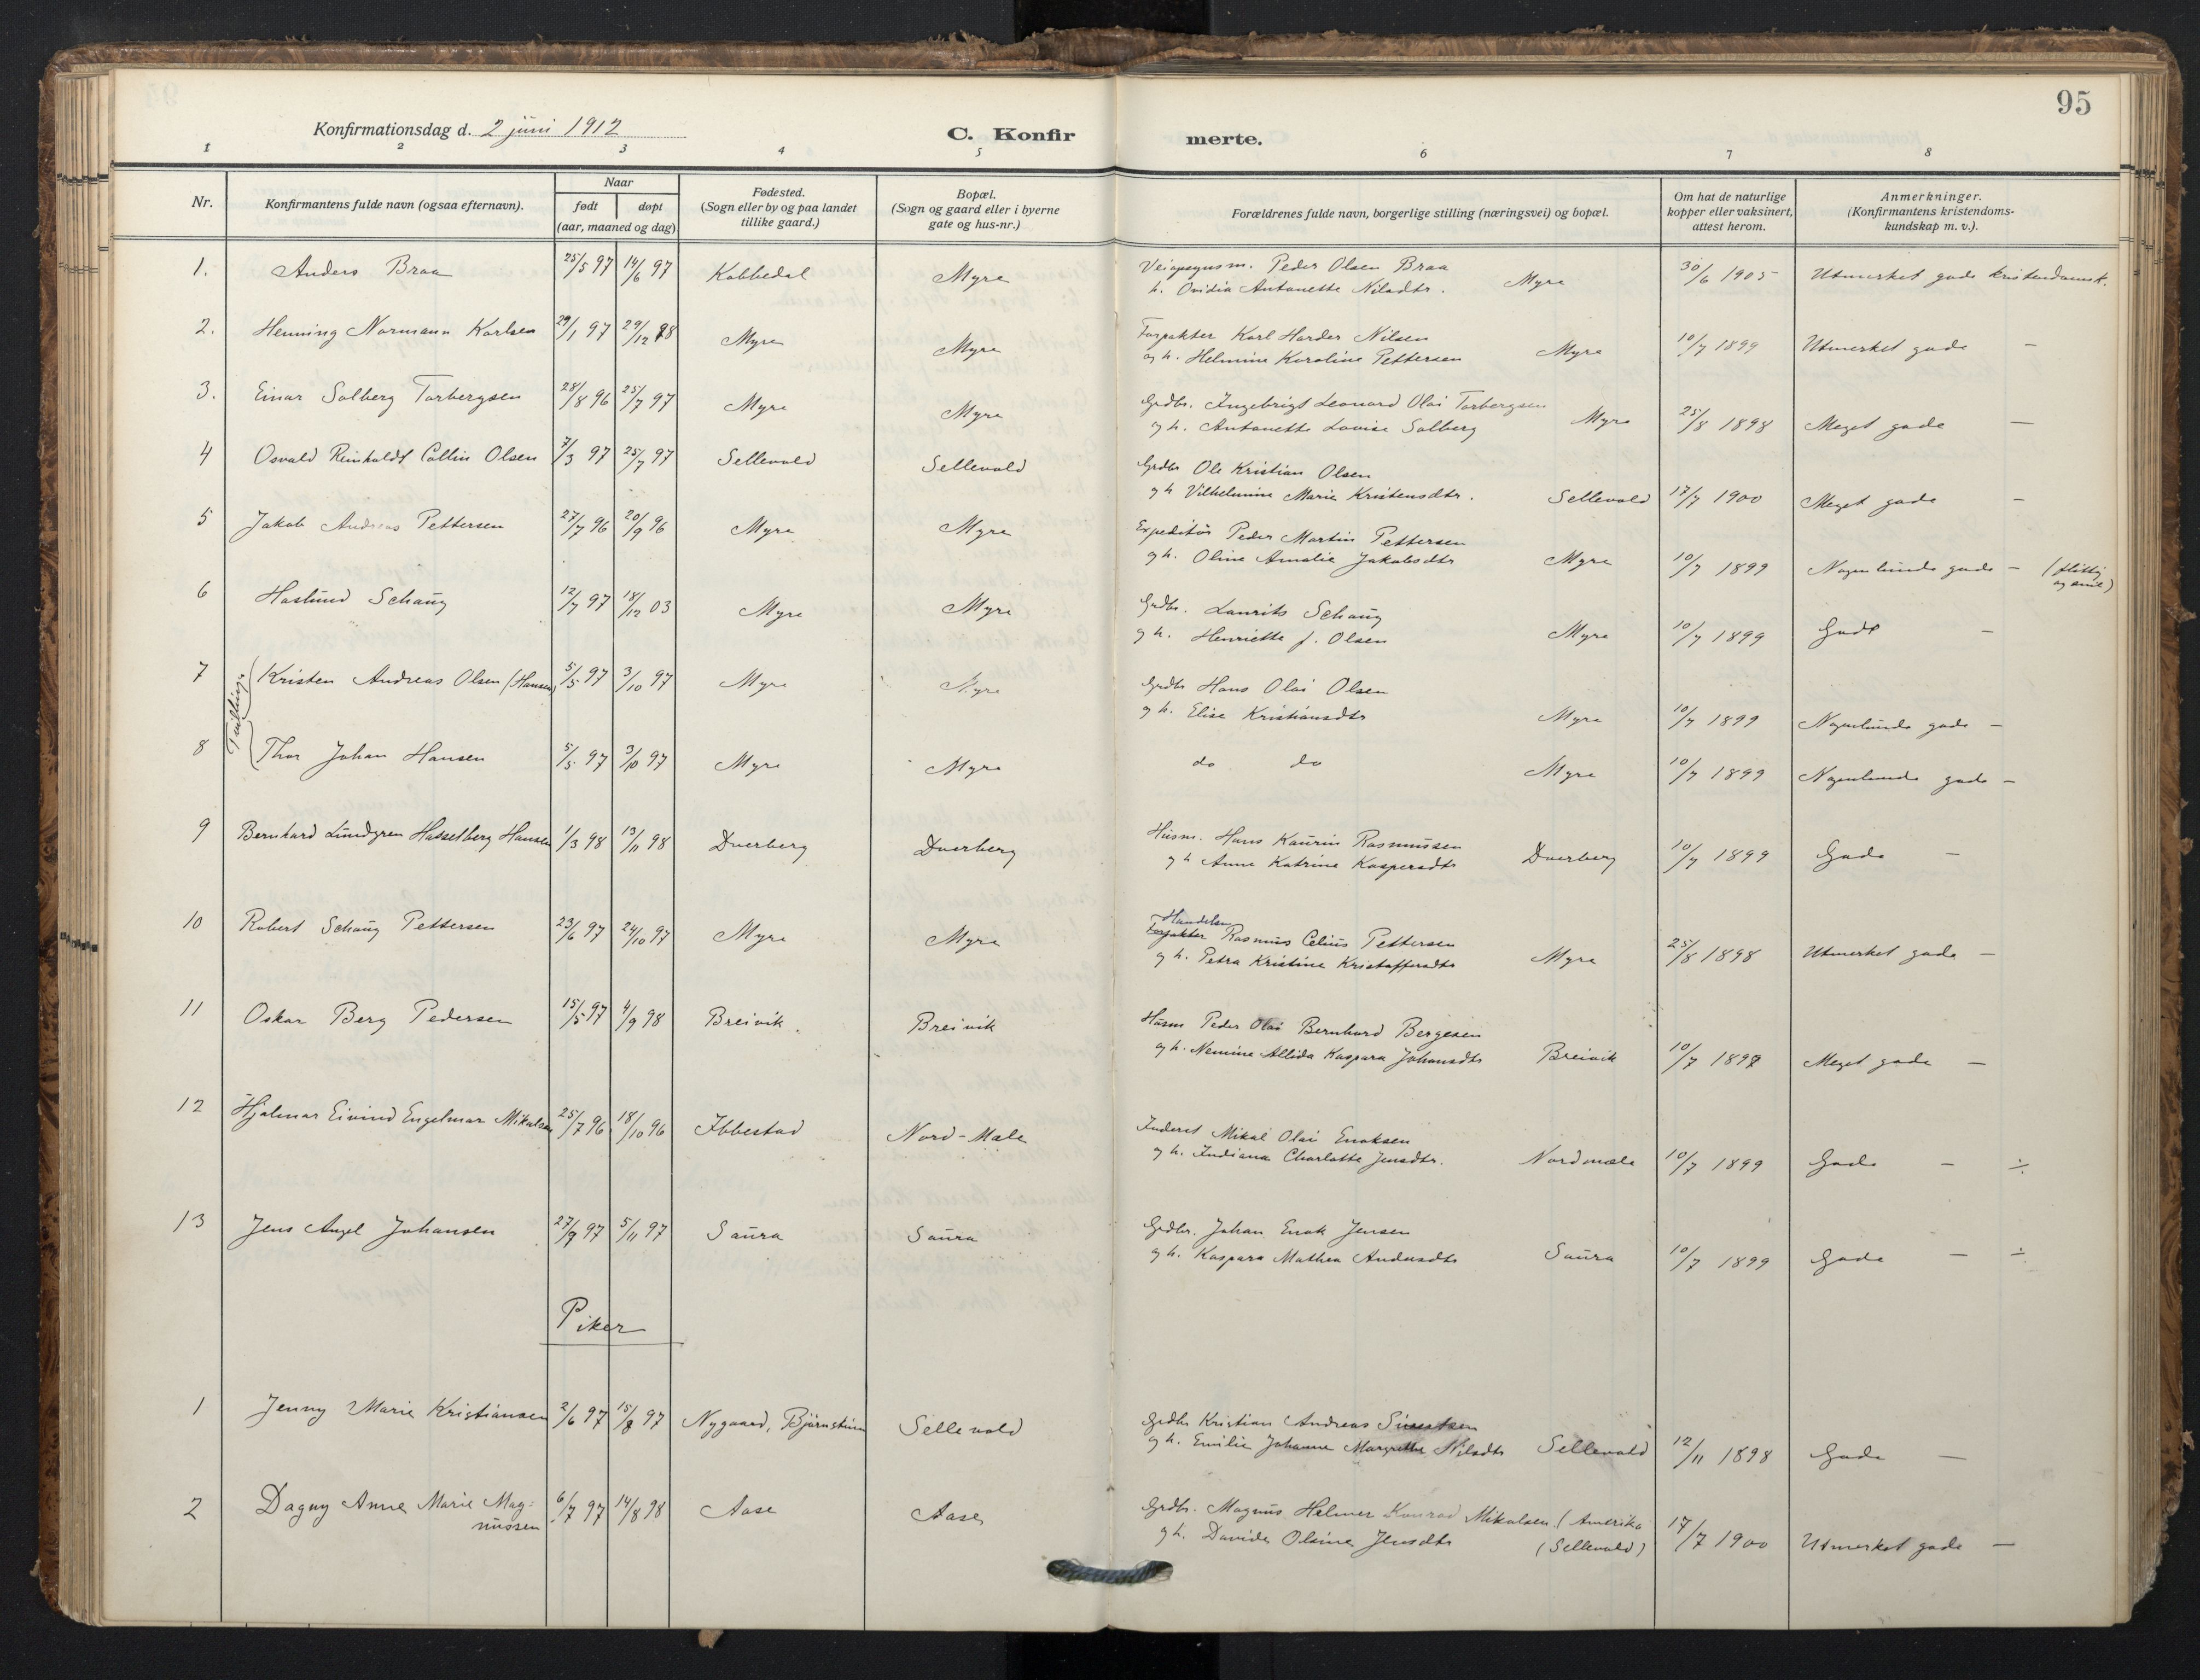 95
Konfirmationsdag d. 2 juni 1912
C. Konfir merte.
1 2 3 4 5 6 7 8
Nr.
Konfirmantens fulde navn (ogsaa efternavn).
Naar
født døpt
(aar, maaned og dag)
Fødested.
(Sogn eller by og paa landet
tillike gaard.)
Bopæl.
(Sogn og gaard eller i byerne
gate og hus-nr.)
Forældrenes fulde navn, borgerlige stilling (næringsvei) og bopæl.
Om hat de naturlige
kopper eller vaksinert,
attest herom.
Anmerkninger.
(Konfirmantens kristendoms-
kundskap m. v.).
1. Anders Braa 25/5 97 14/6 97 Kobbedal Myre Peder Olsen Braa
h. Ovidia Antonette Nilsdtr. Myre 30/6 1905 Utmerket gode kristendomsk.
2. Henning Normann Karlsen 29/1 97 29/12 98 Myre Myre Forpakter Karl Harder Nilsen
og h. Helmine Karoline Pettersen Myre 10/7 1899 Utmerket gode —
3. Einar Solberg Torbergsen 28/8 96 25/7 97 Myre Myre Grdbr. Ingebrigt Leonard Olai Torbergsen
og h. Antonette Lovise Solberg Myre 25/8 1898 Meget gode —
4 Osvald Reinholdt Collin Olsen 7/3 97 25/7 97 Sellevold Sellevold Grdbr Ole Kristian Olsen
og h Vilhelmine Marie Kristensdtr. Sellevold 17/7 1900 Meget gode —
5 Jakob Andreas Pettersen 27/7 96 20/9 96 Myre Myre Expeditör Peder Martin Pettersen
og h. Oline Amalie Jakobsdtr Myre 10/7 1899 Nogenlunde gode — (flittig
og snil)
6 Haslund Schaug 12/7 97 18/12 03 Myre Myre Grdbr. Laurits Schaug
og h. Henriette f. Olsen Myre 10/7 1899 Gode —
Tvillinger
7 Kristen Andreas Olsen (Hansen) 5/5 97 3/10 97 Myre Myre Grdbr Hans Olai Olsen
og h. Elise Kristiansdtr Myre 10/7 1899 Nogenlunde gode —
8 Thor Johan Hansen 5/5 97 3/10 97 Myre Myre do do Myre 10/7 1899 Nogenlunde gode —
9 Bernhard Lundgren Hasselberg Hansen 1/3 98 13/11 98 Dverberg Dverberg Husm. Hans Kaurin Rasmussen
og h Anne Katrine Kaspersdtr Dverberg 10/7 1899 Gode —
10 Robert Schaug Pettersen 23/6 97 24/10 97 Myre Myre Handelsm
Forpakter Rasmus Celius Pettersen
og h. Petra Kristine Kristoffersdtr Myre 25/8 1898 Utmerket gode —
11 Oskar Berg Pedersen 15/5 97 4/9 98 Breivik. Breivik Husm Peder Olai Bernhard Bergesen
og h. Nemine Allida Kaspara Johansdtr Breivik 10/7 1897 Meget gode —
12 Hjalmar Eivind Engelmar Mikalsen 25/7 96 18/10 96 Ibbestad Nord-Mæle Inderst Mikal Olai Enoksen
og h. Indiana Charlotte Jensdtr. Nordmæle 10/7 1899 Gode — ÷
13 Jens Angel Johansen 27/9 97 5/11 97 Saura Saura Grdbr. Johan Enok Jensen
og h. Kaspara Mathea Andersdtr Saura 10/7 1899 Gode — ÷
Piker
1 Jenny Marie Kristiansen 2/6 97 15/8 97 Nygaard, Björnskinn Sellevold Grdbr Kristian Andreas
og h. Emilie Johanne Margrethe Nilsdtr Sellevold 12/11 1898 Gode —
2 Dagny Anne Marie Mag=
nussen 6/7 97 14/8 98 Aase Aase Grdbr. Magnus Helmer Konrad Mikalsen (Amerika
og h. Davida Olsine Jensdtr (Sellevold) 17/7 1900 Utmerket gode —